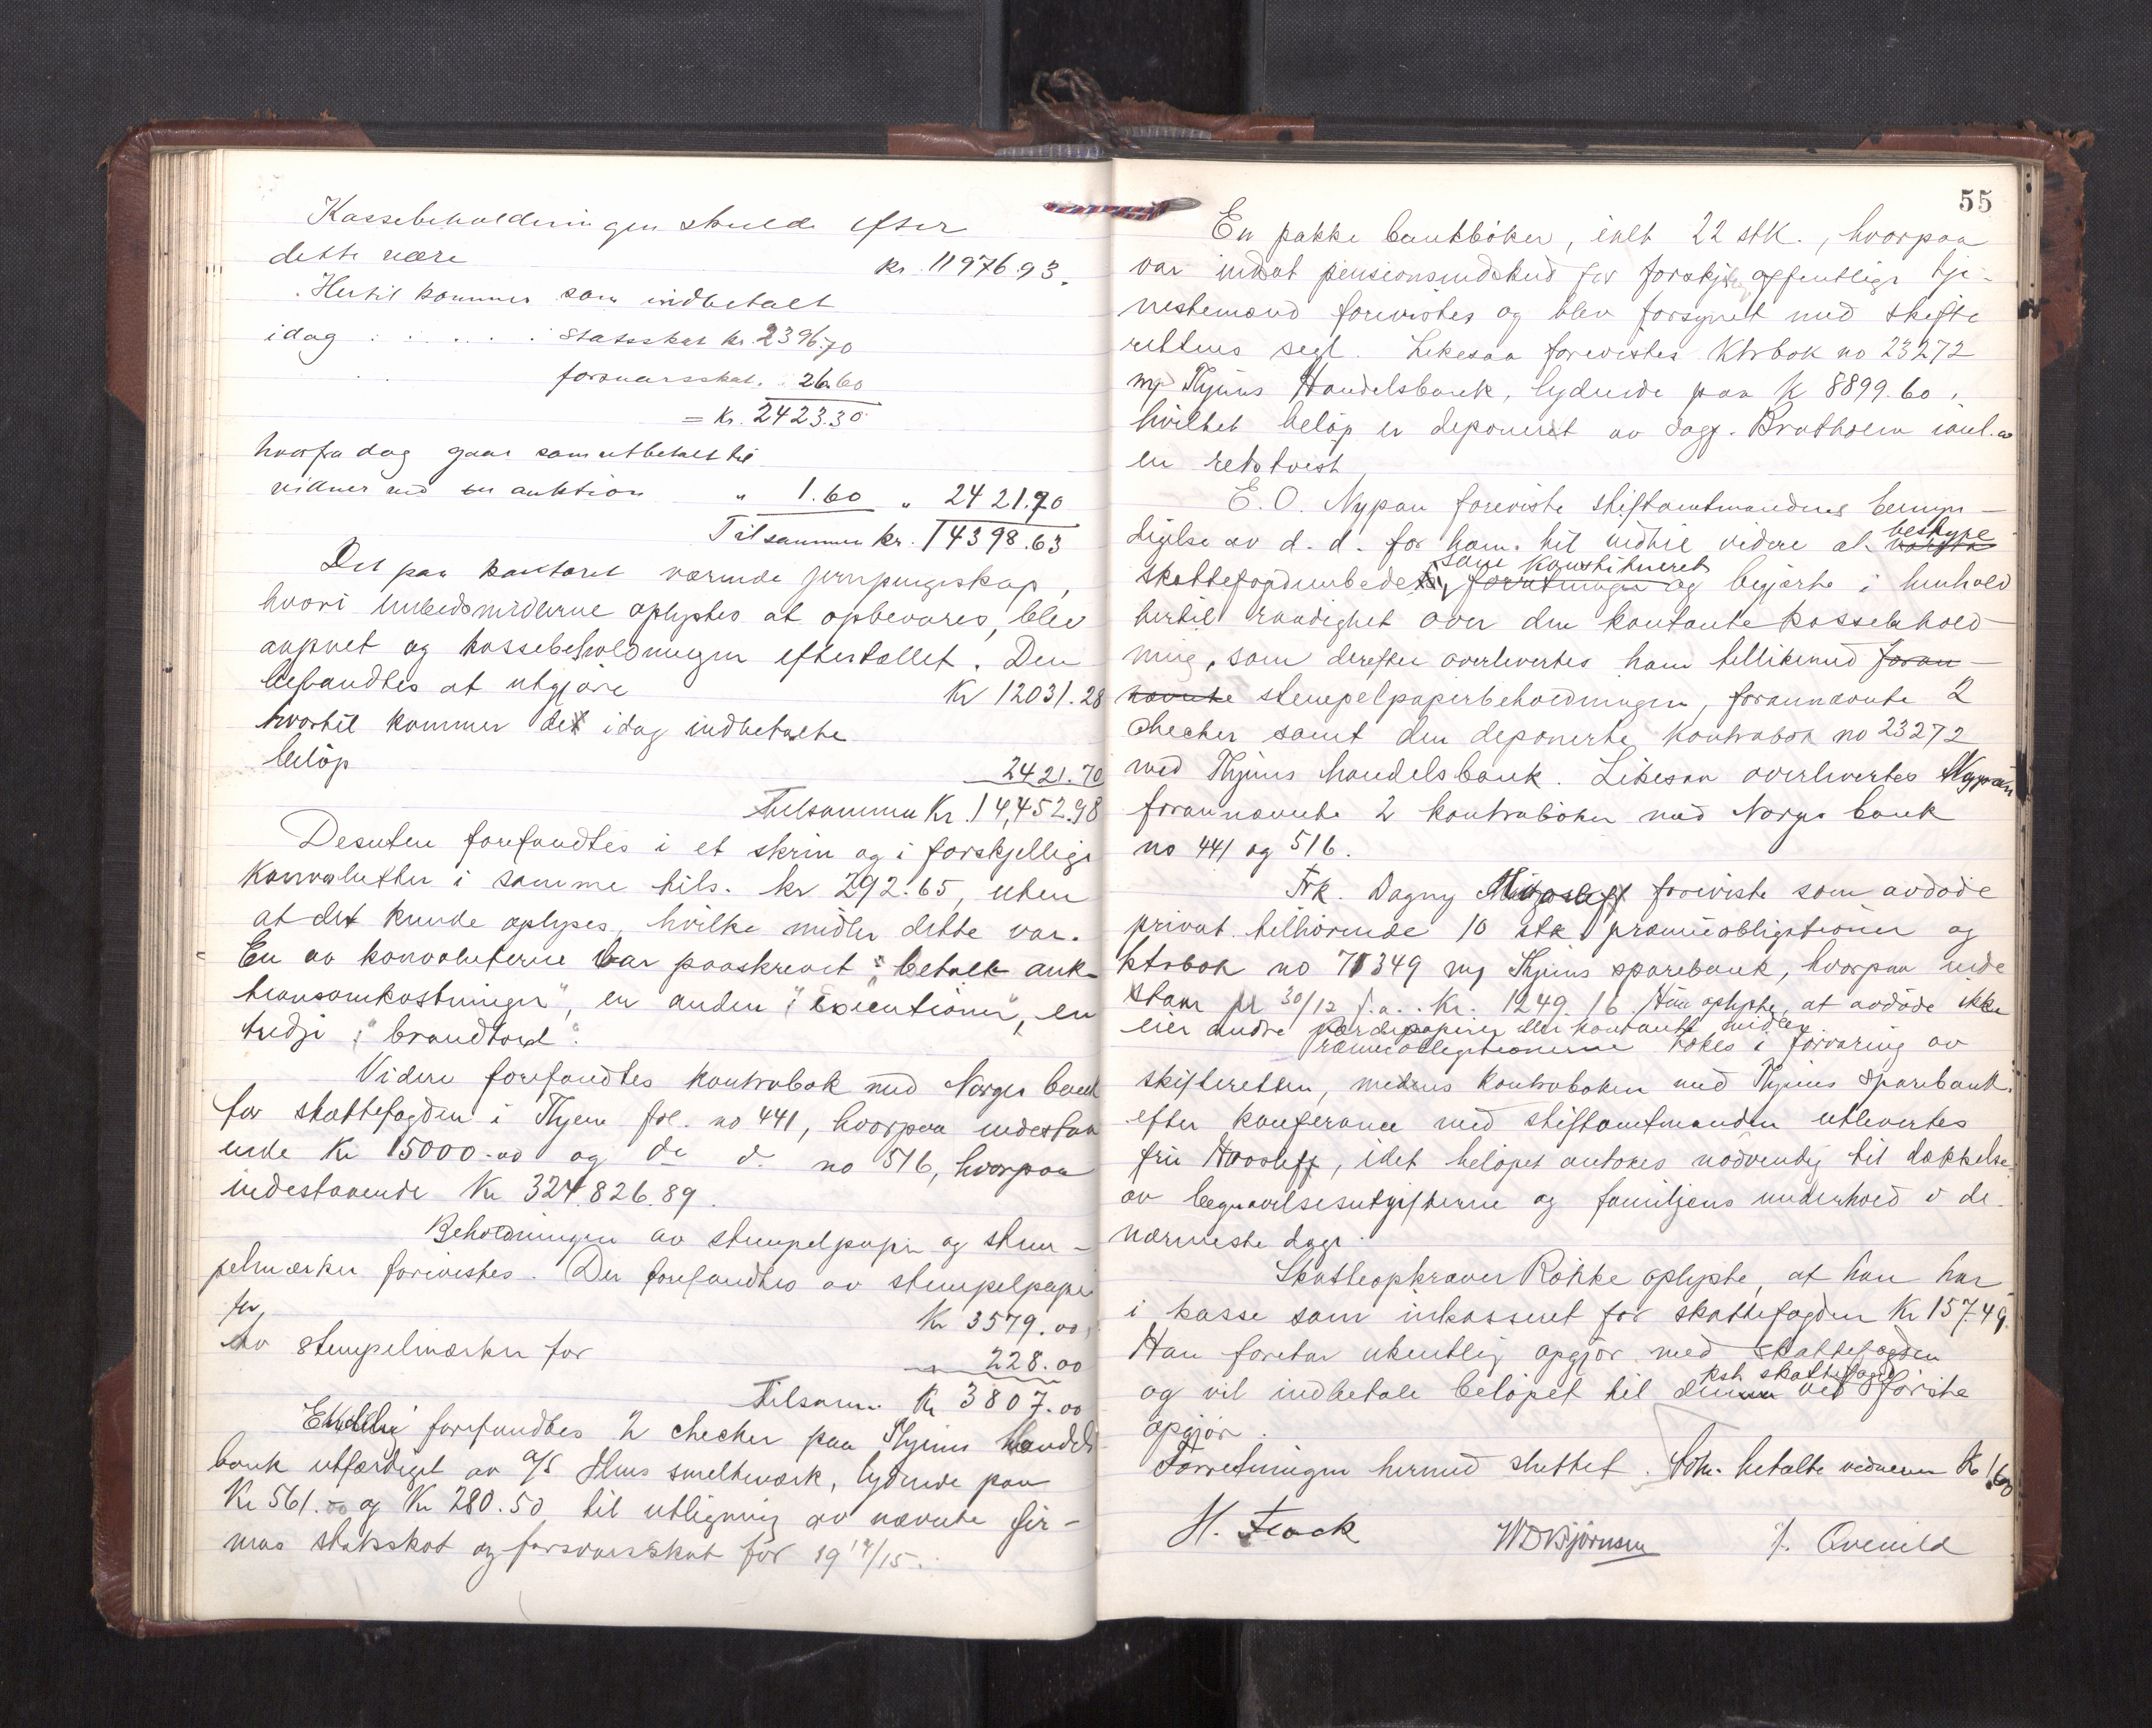 Kassebeholdningen skulde efter
dette være kr. 11976.93.
Hertil kommer som indbetalt
idag : . . . . : Statsskat kr. 2396.70
forsvarsskat. : 26.60
= Kr. 2423.30
hvorfra dog gaar som utbetalt til
vidner ved en auktion " 1.60 " 2421.70
Tilsammen kr. 14398.63
Det paa kontoret værende jernpengeskap,
hvori embedsmidlerne oplystes at opbevares, blev
aapnet og kassebeholdningen eftertællet. Den
befandtes at utgjøre Kr 12031.28
hvortil kommer det idag indbetalte
beløp 2421.70
Tilsammen Kr. 14,452.98
Desuten forefandtes i et skrin og i forskjellige
konvolutter i samme tils. kr 292.65, uten
at det kunde oplyses, hvilke midler dette var.
En av konvoluterne var paaskrevet: "betalt auk-
tionsomkostninger", en anden: "Executioner", en
tredje: "brandtord".
Videre forefandtes kontrabok med Norges bank
for skattefogden i Thjem fol. no 441, hvorpaa indestaa
ende Kr 15000.00 og do d. no 516, hvorpaa
indestaaende Kr 324.826.89.
Beholdningen av stempelpapir og stem-
pelmærker forevistes. Der forefandtes av stempelpapir
for Kr 3579.00
av stempelmærker for " 228.00
Tilsam. Kr 3807.00
Endelig forefandtes 2 checker paa Thjems Handels
bank utfærdiget av A/S Ilens smelteverk, lydende paa
Kr 561.00 og Kr 280.50 til utligning av nævnte fir-
mas statsskat og forsvarsskat for 1914/15.
55
En pakke bankbøker, ialt 22 stk., hvorpaa
var indsat pensionsindskud for forskjel. offentlige tje-
nestemænd forevistes og blev forsynet med skifte
rettens segl. Likesaa forevistes Ktrbok no 23272
m/ Thjems Handelsbank, lydende paa kr 8899.60,
hvilket beløp er deponeret av sagf. Bratholm
en retstvist.
E. O. Nypan foreviste stiftamtmandens bemyn-
digelse av d. d. for ham til indtil videre at bestyre
skattefogdembedet som konstitueret og begjærte i henhold
hertil raadighet over den kontante kassebehold-
ning, som derefter overlevertes ham tillikemed foran-
nævnte stempelpapirbeholdningen, forannævnte 2
checker samt den deponerte kontrabok no 23272
med Thjems handelsbank. Likesaa overlevertes Nypan
forannævnte 2 kontrabøker med Norges bank
no 441 og 516.
Frk. Dagny foreviste som avdøde
privat tilhørende 10 stk præmieobligationer og
ktrbok no 71349 m/ Thjems sparebank, hvorpaa inde
staar pr 30/12 f. a. Kr. 1249.16. Hun oplyste, at avdøde ikke
eier andre værdipapirer eller kontante midler.
Præmieobligationerne tokes i forvaring av
skifteretten, medens kontraboken med Thjems sparebank
efter konferance med stiftamtmanden utlevertes
frk Hoosleff, idet beløpet antokes nødvendig til dækkelse
av begravelsesutgifterne og familjens underhold i de
nærmeste dage.
Skatteopkræver Røkke oplyste, at han har
i kasse som inkasseret for skattefogden Kr 157.49.
Han foretar ukentlig opgjør med skattefogden
og vil indbetale beløpet til kst. skattefogd ved første
opgjør.
Forretningen hermed sluttet. betalte vidnerne Kr 1.60
H. Flock WDBjørnsen J. Qvenild